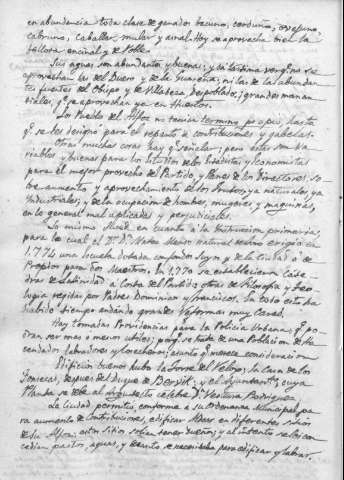 en abundancia toda clase de ganados bacuno, cerduno, ovejuno,
cabruno, caballar, mular y asnal. Hoy se aprovecha bien la
bellota encinal y de roble.
Sus aguas son abundantes y buenas; y es lastima vergª no se
aprovechan las del Duero y de la Guareña, ni las de las abundan
tes fuentes del Obispo y de Villaveza despoblado, grandes manan
tiales, qe se aprovechan ya en Huertos.
Los Pueblos del Alfoz no tenian termino propio, hasta
qe se les designó para el reparto de contribuciones y gabelas.
Otras muchas cosas hay qe señalar; pero estos son va
riables y buenas para los estudios de los Estadistas y Economistas
para el mejor provecho del Partido, y Planes de los Directores, so
bre aumento y aprovechamiento de los frutos, ya naturales, ya
industriales; y de la ocupacion de hombres, mugeres y maquinas,
en lo general mal aplicadas y perjudiciales.
Lo mismo sucede en cuanto á la Instruccion primaria;
para la cual el Dn Mateo natural erigió en
1.774 una Escuela dotada con fondos suyos y de la ciudad ó de
Propios para dos Maestros. En 1.770 se establecieron Cate
dras de Latinidad a costa del Partido, otras de Filosofia y Teo
logia regidas por Padres Dominicos y Franciscos. En todo esto ha
habido tiempo andando grandes Reformas muy
Hay tomadas Providencias para la Policia Urbana, qe po
dran ser mas o menos utiles; porqe se trata de una Poblacion de Ha
cendados labradores y Cosecheros; asunto qe merece consideracion
Edificios buenos hubo la Torre del Relox; la Casa de los
Fonsecas, despues del Duque de Bervik; y el Ayuntamto, cuya
Planta se debe al Arquitecto celebre Dn Ventura Rodriguez
La Ciudad permitió, conforme a su Ordenanza Municipal, pa
ra aumento de contribuciones, edificar Casas en diferentes sitios
de su Alfoz; cuyos sitios solian tener dueños; y al instante se les con
cedian pastos, aguas, y cuanto se necesitaba para edificar y labrar.